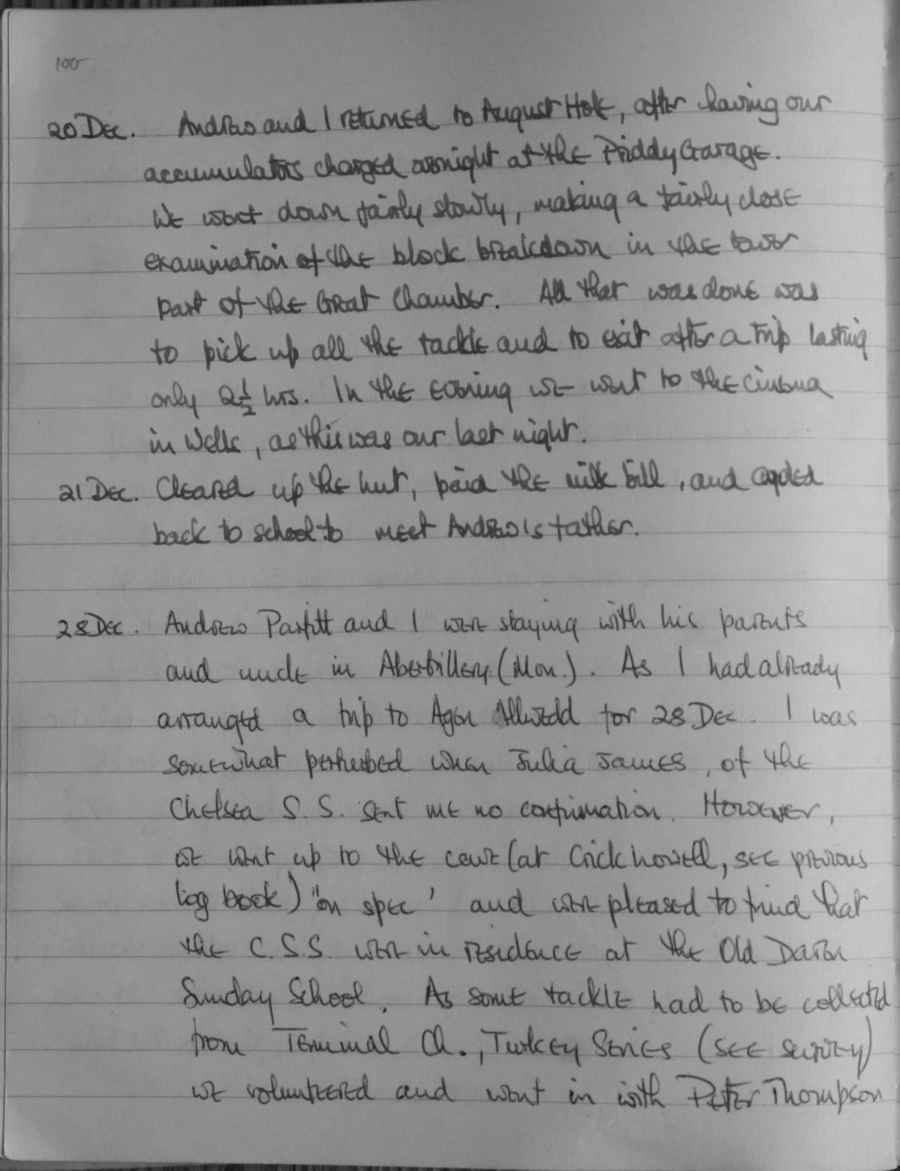 100
20 Dec. Andrew and I returned to August Hole, after having our
accumulators charged overnight at the Priddy Garage.
We went down fairly slowly, making a fairly close
examination of the block breakdown in the lower
part of the Great Chamber. All that was done was
to pick up all the tackle and to exit after a trip lasting
only 2½ hrs. In the evening we went to the cinema
in Wells, as this was our last night.
21 Dec. Cleared up the hut, paid the milk bill, and cycled
back to school to meet Andrew's father.
28 Dec. Andrew Parfitt and I were staying with his parents
and uncle in Abertillery (Mon.). As I had already
arranged a trip to Agen Allwedd for 28 Dec. I was
somewhat perturbed when Julia James, of the
Chelsea S.S. sent me no confirmation. However,
we went up to the cave (at Crickhowell, see previous
log book) "on spec' and were pleased to find that
the C.S.S. were in residence at the Old Daren
Sunday School. As some tackle had to be collected
from Terminal Ch., Turkey Series (see survey)
we volunteered and went in with Peter Thompson